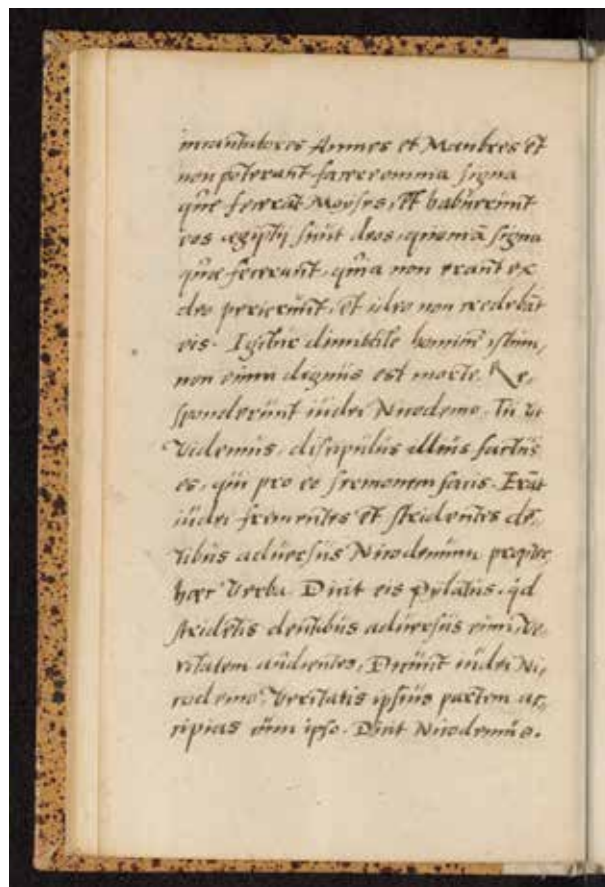 incantatores Annnes et Mambres et
non poterant facere omnia signa
que fecerāt Moyses, et habuerunt
eos egiptij sicut deos, quoniā signa
que fecerunt, quia non erant ex
deo perierūt, et ideo non credebāt
eis. Igitur dimittite hominē istum,
non enim dignus est morte. Re,
sponderunt iudei Nicodemo. Tu ut
Videmus, discipulus illius factus
es, qui pro eo sremonem facis. Erāt
iudei frementes et stridentes de,
tibus aduersus Nicodemum propter
hæc Verba. Dicit eis Pylatus, qd
stridetis dentibus aduersus eum, ve,
ritatem audientes, Dicunt iudei Ni,
codemo, Veritatis ipsius partem ac,
cipias cum ipso. Dicit Nicodemus.